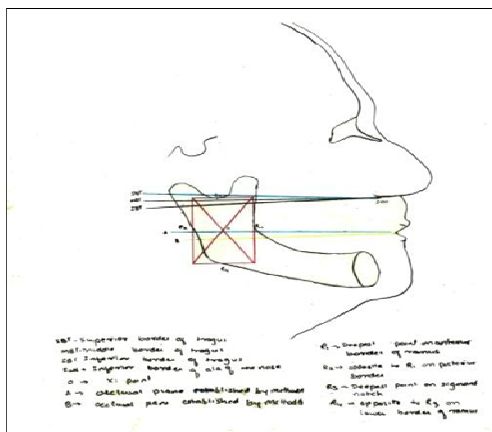 SBT
MBT
IBT
R3
R1
R4
A
B
SBT - Superior border of tragus
MBT - Middle border of tragus
IBT Inferior border of tragus
Inferior border of ala of the nose
Xi point
A → occlusal plane established by method
B → occlusal plane established by method
R1 → Deepest point on anterior
border of ramus
R2 → opposite to R1 on posterior
border
R3 → Deepest point on sigmoid
notch
R4 → opposite to R3 on
lower border of ramus